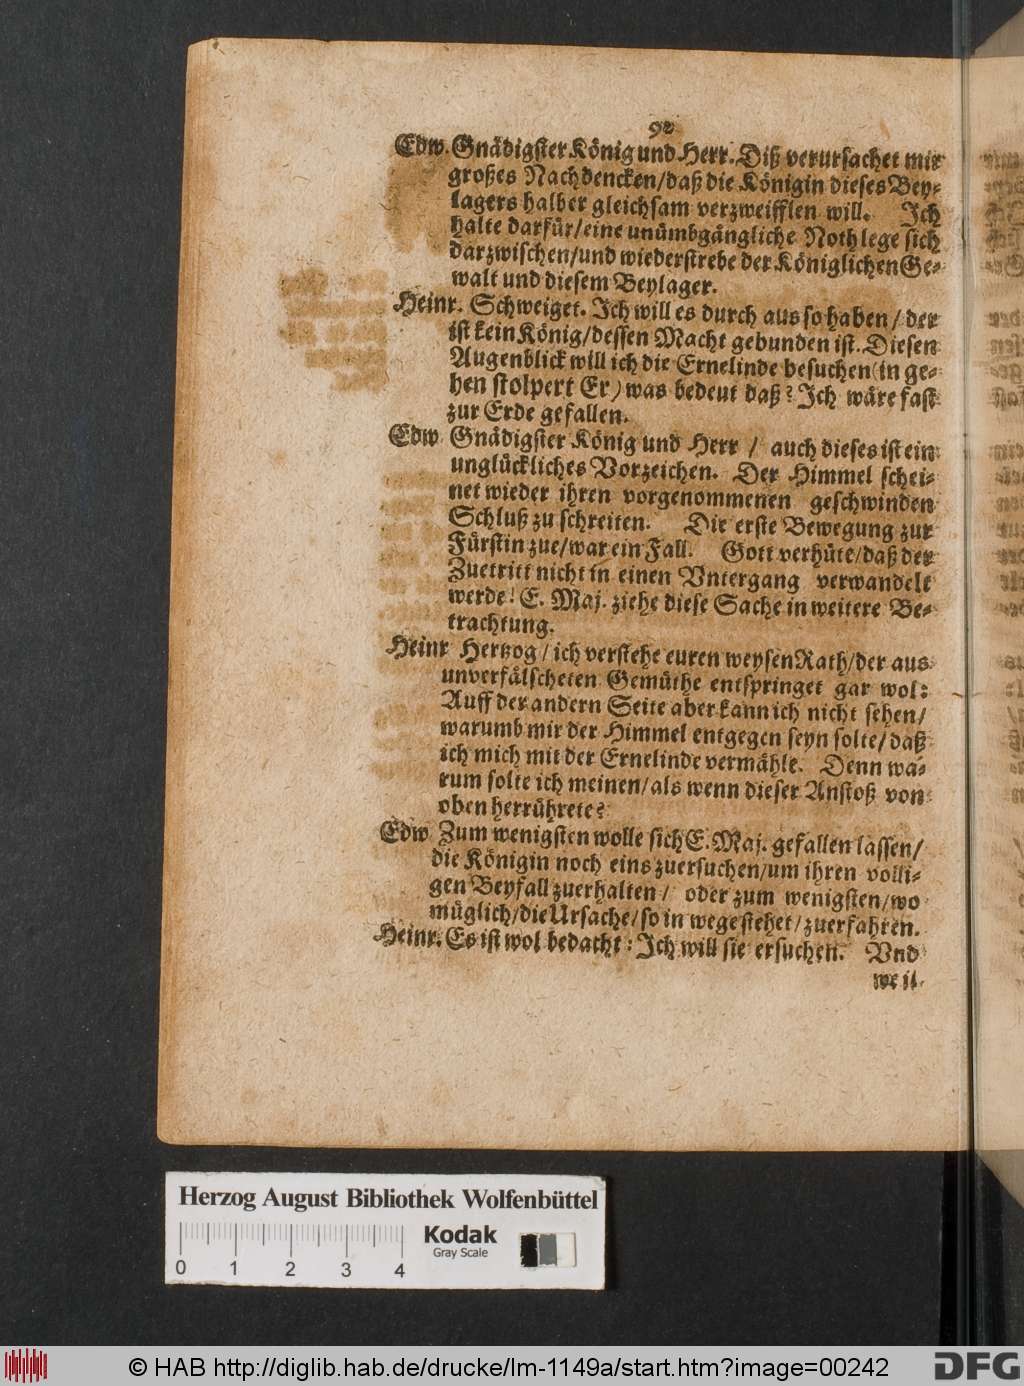 92
Edw. Gnädigster König und Herr. Diß verursachet mir
großes Nachdencken/daß die Königin dieses Bey-
lagers halber gleichsam verzweifflen will. Ich
halte darfür/eine unümbgängliche Noth lege sich
darzwischen/und wiederstrebe der Königlichen Ge-
walt und diesem Beylager.
Heinr. Schweiget. Ich will es durch aus so haben/der
ist kein König/dessen Macht gebunden ist. Diesen
Augenblick will ich die Ernelinde besuchen(in ge-
hen stolpert Er) was bedeut daß? Ich wäre fast
zur Erde gefallen.
Edw Gnädigster König und Herr / auch dieses ist ein
unglückliches Vorzeichen. Der Himmel schei-
net wieder ihren vorgenommenen geschwinden
Schluß zu schreiten. Die erste Bewegung zur
Fürstin zue/war ein Fall. Gott verhüte/daß der
Zuetritt nicht in einen Vntergang verwandelt
werde! E. Maj. ziehe diese Sache in weitere Be-
trachtung.
Heinr Hertzog/ich verstehe euren weysen Rath/der aus
unverfälscheten Gemüthe entspringet gar wol:
Auff der andern Seite aber kann ich nicht sehen/
warumb mir der Himmel entgegen seyn solte/daß
ich mich mit der Ernelinde vermähle. Denn wa-
rum solte ich meinen/als wenn dieser Anstoß von
oben herrührete?
Edw Zum wenigsten wolle sich E. Maj. gefallen lassen/
die Königin noch eins zuersuchen/um ihren volli-
gen Beyfall zuerhalten/ oder zum wenigsten/wo
müglich/die Ursache/so in wege stehet/zuerfahren.
Heinr. Es ist wol bedacht: Ich will sie ersuchen. Vnd
weil
Herzog August Bibliothek Wolfenbüttel
Kodak
Gray Scale
0 1 2 3 4
© HAB http://diglib.hab.de/drucke/lm-1149a/start.htm?image=00242
DFG